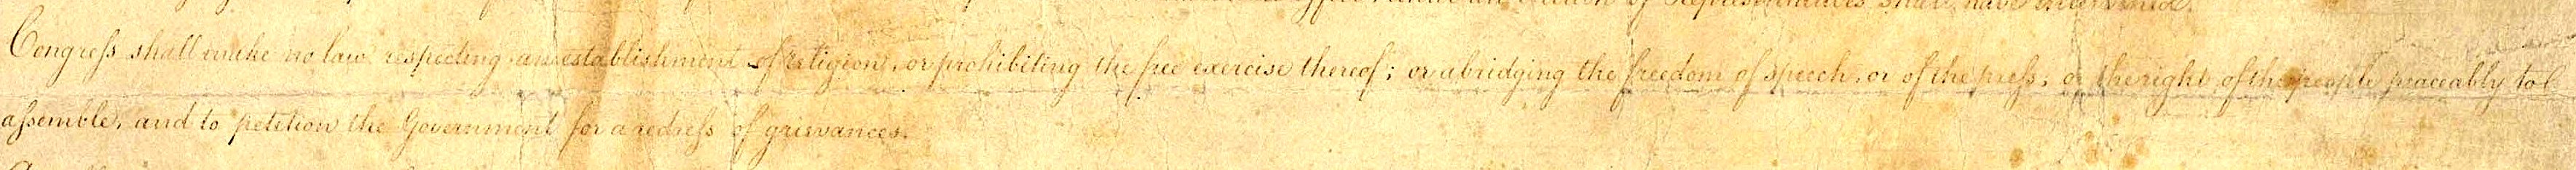 of Representatives shall have intervened.
Congreſs shall make no law respecting an establishment of religion, or prohibiting the free exercise thereof; or abridging the freedom of speech, or of the preſs; or the right of the people peaceably to
aſsemble, and to petition the Government for a redreſs of grievances.